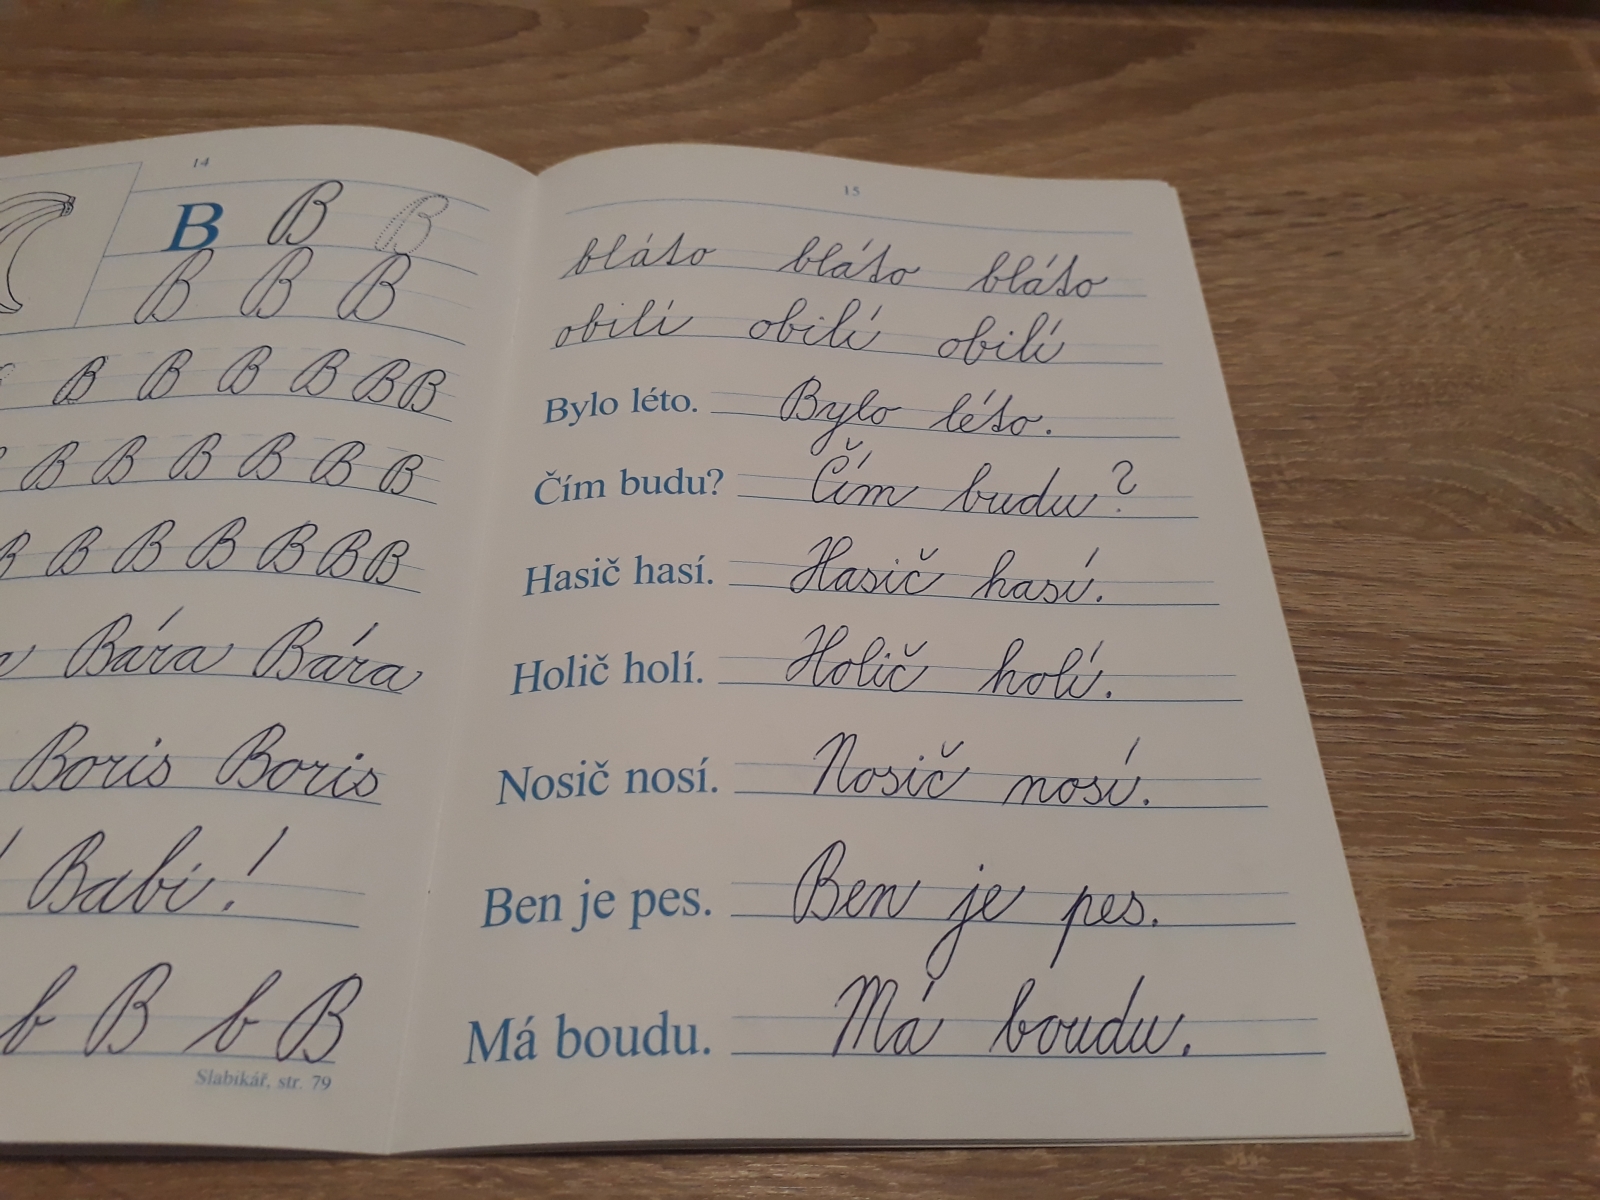 14
B B B
B B B
B B B B B B
B B B B B B
B B B B B B B
Bára Bára
Boris Boris
! Babi!
b B b B
Slabikář, str. 79
15
bláto bláto bláto
obilí obilí obilí
Bylo léto. Bylo léto.
Čím budu? Čím budu?
Hasič hasí. Hasič hasí.
Holič holí. Holič holí.
Nosič nosí. Nosič nosí.
Ben je pes. Ben je pes.
Má boudu. Má boudu.